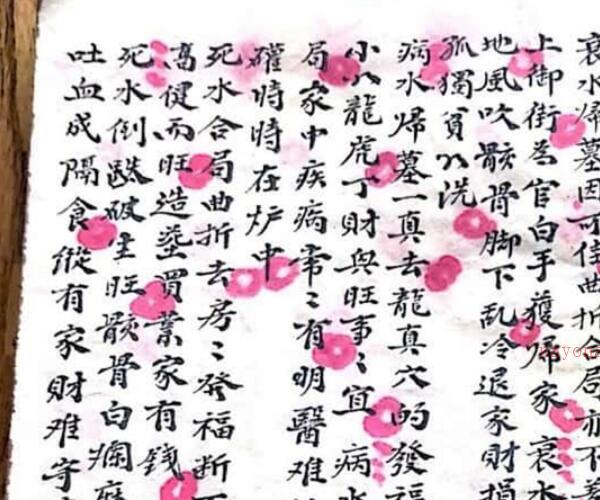 衰水歸墓因可佳曲折合局亦不
上御街為官白手獲歸家衰水
地風吹骸骨脚下乱冷退家財損
孤獨貧以洗
病水歸墓一真去龍真穴的發福
小以龍虎丁財與旺事〻宜病水
局家中疾病常〻有明醫难
礶時時在炉中
死水合局曲折去房〻發福断
高健而旺造塟買業家有錢
死水倒跌破生旺骸骨白爛
吐血成隔食縱有家財难守